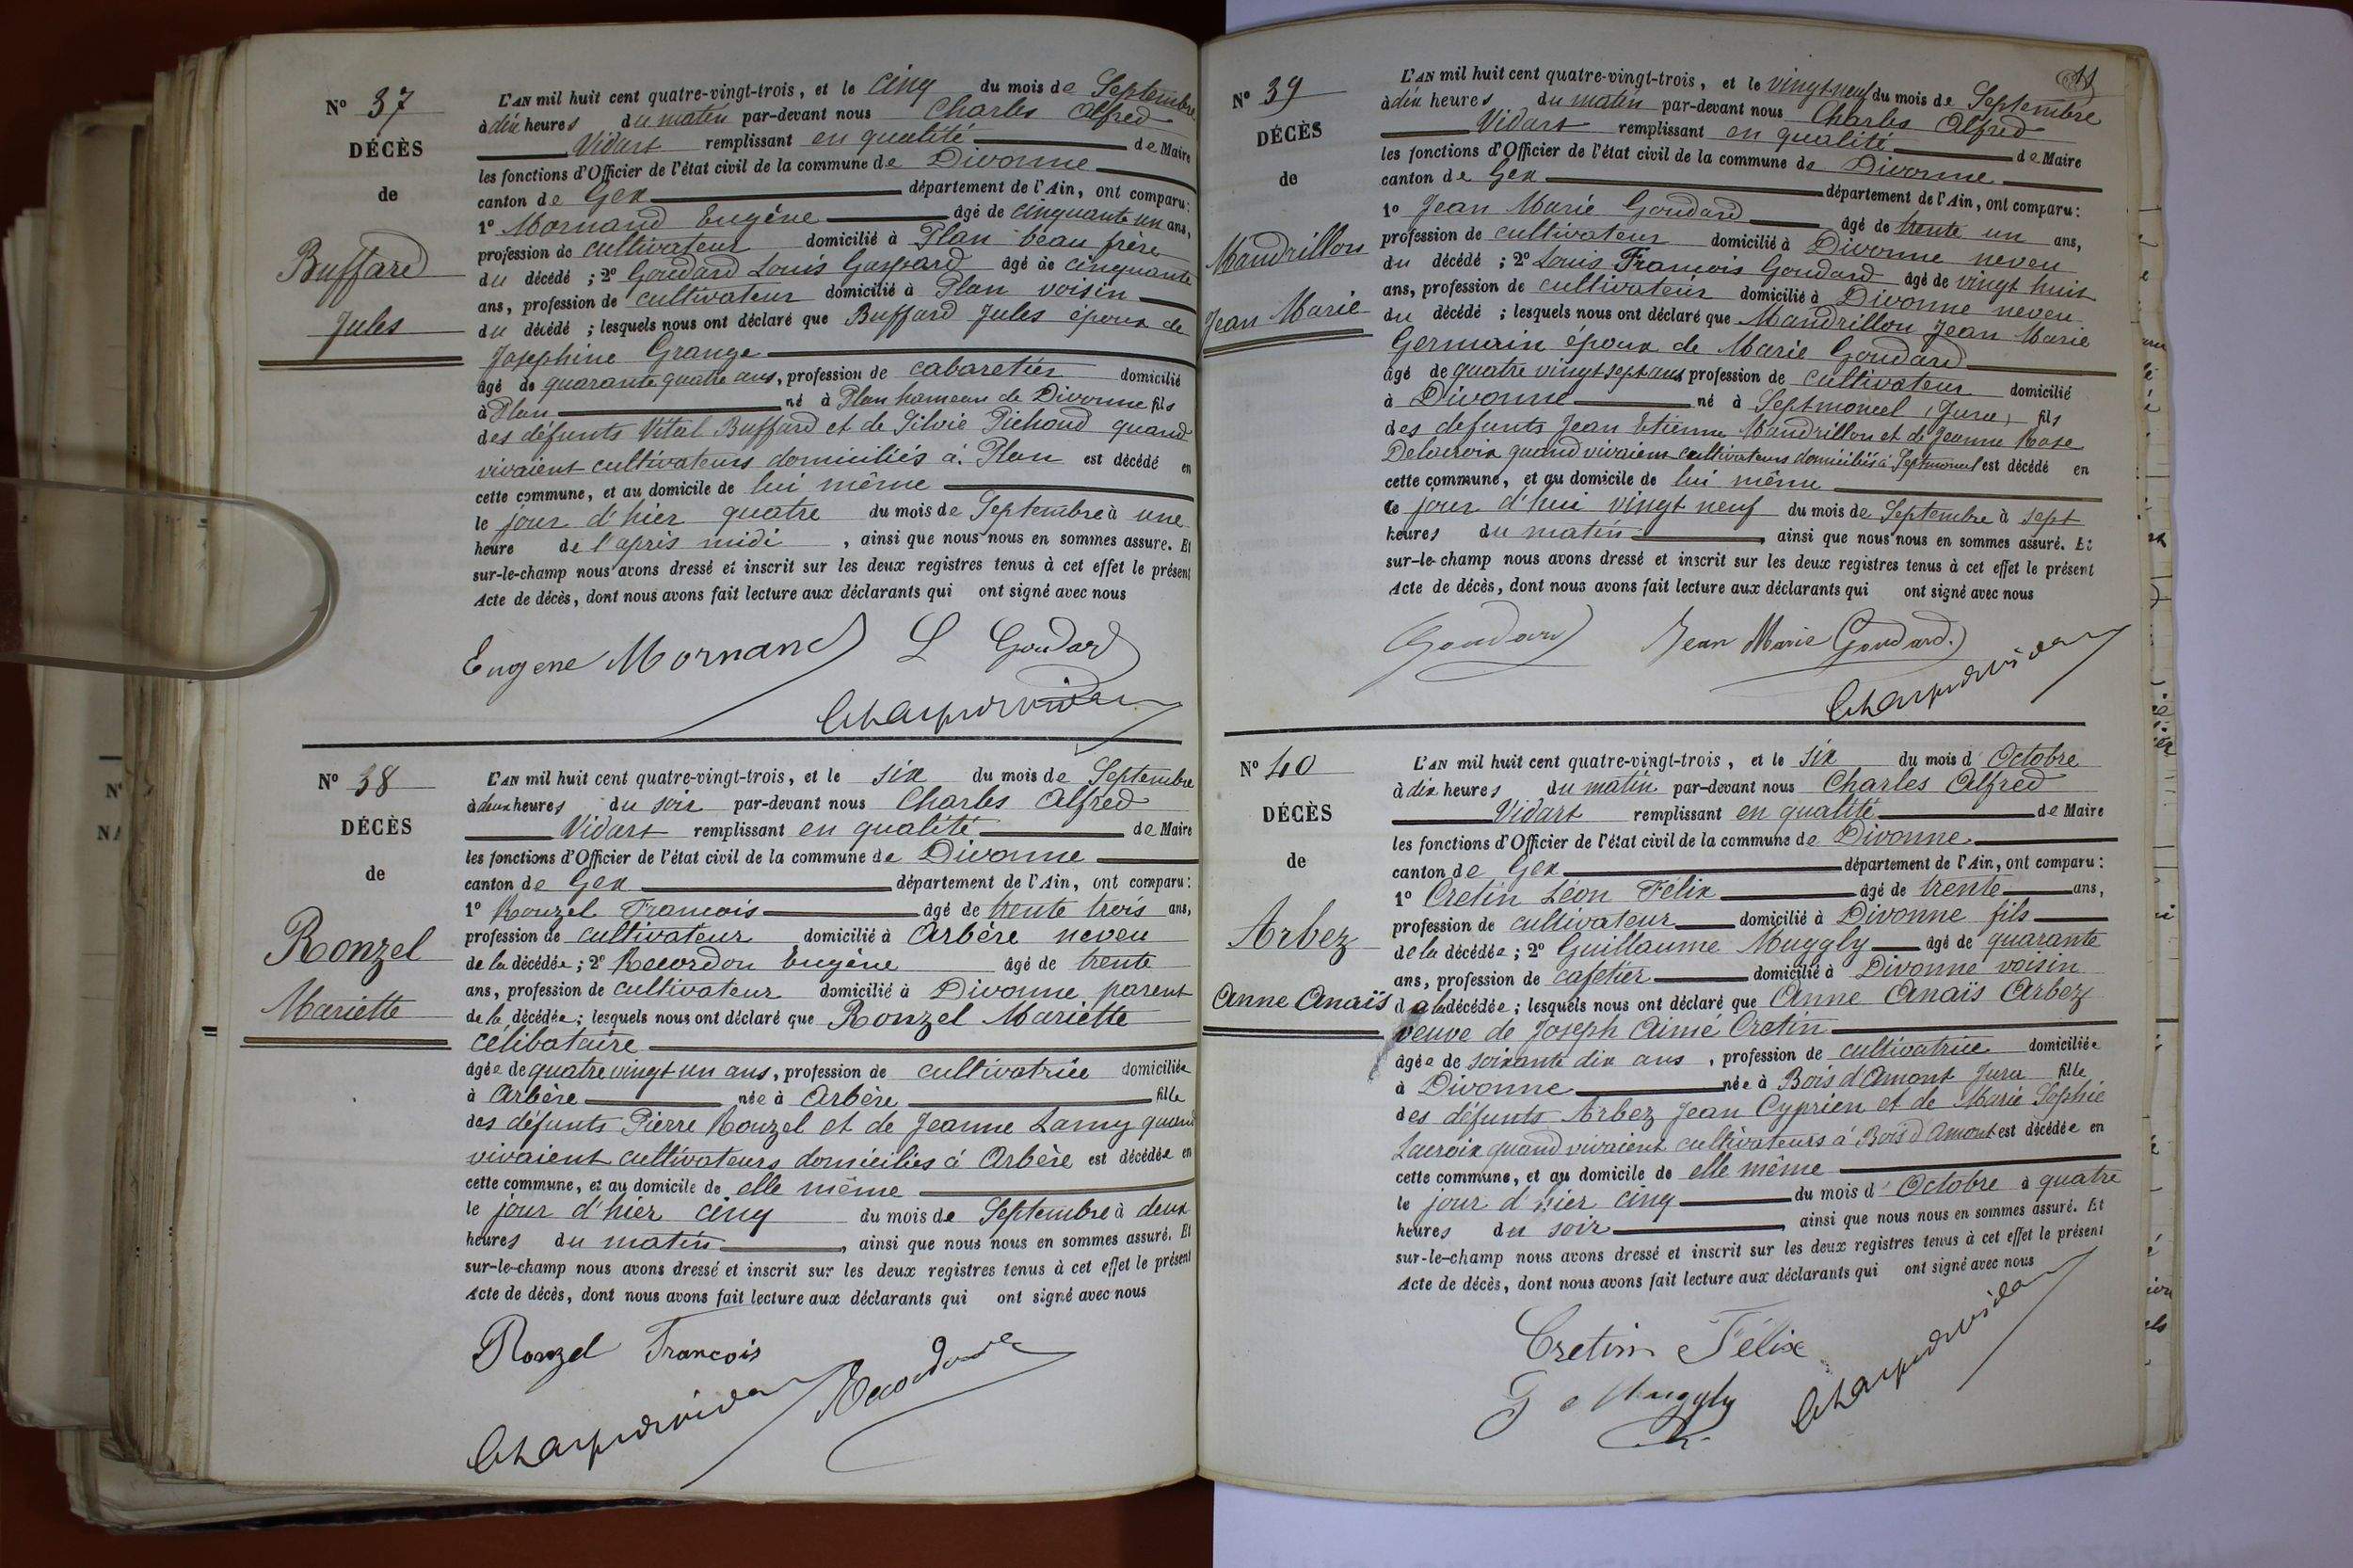 N° 37
DÉCÈS
de
Buffard
Jules
L'AN mil huit cent quatre-vingt-trois, et le cinq du mois de Septembre
à dix heures du matin par-devant nous Charles Alfred
Vidart remplissant en qualité de Maire
les fonctions d'Officier de l'état civil de la commune de Divonne
canton de Gex département de l'Ain, ont comparu:
1° Mornand Eugène âgé de cinquante un ans,
profession de cultivateur domicilié à Plan beau frère
du décédé ; 2° Goudard Louis Gaspard âgé de cinquante
ans, profession de cultivateur domicilié à Plan voisin
du décédé ; lesquels nous ont déclaré que Buffard Jules époux de
Josephine Grange
âgé de quarante quatre ans, profession de cabaretier domicilié
à Plan né à Plan hameau de Divonne fils
des défunts Vital Buffard et de Silvie Pichoud quand
vivaient cultivateurs domiciliés à Plan est décédé en
cette commune, et au domicile de lui même
le jour d'hier quatre du mois de Septembre à une
heure de l'après midi , ainsi que nous nous en sommes assuré. Et
sur-le-champ nous avons dressé et inscrit sur les deux registres tenus à cet effet le présent
Acte de décès, dont nous avons fait lecture aux déclarants qui ont signé avec nous
Eugene Mornand L Goudard
N° 38
DÉCÈS
de
Ronzel
Mariette
L'AN mil huit cent quatre-vingt-trois, et le six du mois de Septembre
à deux heures du soir par-devant nous Charles Alfred
Vidart remplissant en qualité de Maire
les fonctions d'Officier de l'état civil de la commune de Divonne
canton de Gex département de l'Ain, ont comparu:
1° Ronzel Francois âgé de trente trois ans,
profession de cultivateur domicilié à Arbère neveu
de la décédée ; 2° Recordon Eugène âgé de trente
ans, profession de cultivateur domicilié à Divonne parent
de la décédée ; lesquels nous ont déclaré que Ronzel Mariette
célibataire
âgée de quatre vingt un ans, profession de cultivatrice domiciliée
à Arbère née à Arbère fille
des défunts Pierre Ronzel et de Jeanne Lamy quand
vivaient cultivateurs domiciliés à Arbère est décédée en
cette commune, et au domicile de elle même
le jour d'hier cinq du mois de Septembre à deux
heures du matin , ainsi que nous nous en sommes assuré. Et
sur-le-champ nous avons dressé et inscrit sur les deux registres tenus à cet effet le présent
Acte de décès, dont nous avons fait lecture aux déclarants qui ont signé avec nous
Ronzel Francois
11
N° 39
DÉCÈS
de
Mandrillon
Jean Marie
L'AN mil huit cent quatre-vingt-trois, et le vingt-neuf du mois de Septembre
à dix heures du matin par-devant nous Charles Alfred
Vidart remplissant en qualité de Maire
les fonctions d'Officier de l'état civil de la commune de Divonne
canton de Gex département de l'Ain, ont comparu:
1° Jean Marie Goudard âgé de trente un ans,
profession de cultivateur domicilié à Divonne neveu
du décédé ; 2° Louis François Goudard âgé de vingt huit
ans, profession de cultivateur domicilié à Divonne neveu
du décédé ; lesquels nous ont déclaré que Mandrillon Jean Marie
Germain époux de Marie Goudard
âgé de quatre vingt sept ans profession de cultivateur domicilié
à Divonne né à Septmoncel (Jura) fils
des defunts Jean Etienne Mandrillon et de Jeanne Rose
Delacroix quand vivaient cultivateurs domiciliés à Septmoncel est décédé en
cette commune, et au domicile de lui même
le jour d'hui vingt neuf du mois de Septembre à sept
heures du matin , ainsi que nous nous en sommes assuré. Et
sur-le-champ nous avons dressé et inscrit sur les deux registres tenus à cet effet le présent
Acte de décès, dont nous avons fait lecture aux déclarants qui ont signé avec nous
Goudard Jean Marie Goudard
N° 40
DÉCÈS
de
Arbez
Anne Anaïs
L'AN mil huit cent quatre-vingt-trois, et le six du mois d'Octobre
à dix heures du matin par-devant nous Charles Alfred
Vidart remplissant en qualité de Maire
les fonctions d'Officier de l'état civil de la commune de Divonne
canton de Gex département de l'Ain, ont comparu:
1° Cretin Léon Félix âgé de trente ans,
profession de cultivateur domicilié à Divonne fils
de la décédée ; 2° Guillaume Muggly âgé de quarante
ans, profession de cafetier domicilié à Divonne voisin
de la décédée ; lesquels nous ont déclaré que Anne Anaïs Arbez
veuve de Joseph Aimé Cretin
âgée de soixante dix ans , profession de cultivatrice domiciliée
à Divonne née à Bois d'Amont Jura fille
des défunts Arbez Jean Cyprien et de Marie Sophie
Lacroix quand vivaient cultivateurs à Bois d'Amont est décédée en
cette commune, et au domicile de elle même
le jour d'hier cinq du mois d'Octobre à quatre
heures du soir , ainsi que nous nous en sommes assuré. Et
sur-le-champ nous avons dressé et inscrit sur les deux registres tenus à cet effet le présent
Acte de décès, dont nous avons fait lecture aux déclarants qui ont signé avec nous
Cretin Félix
G Muggly